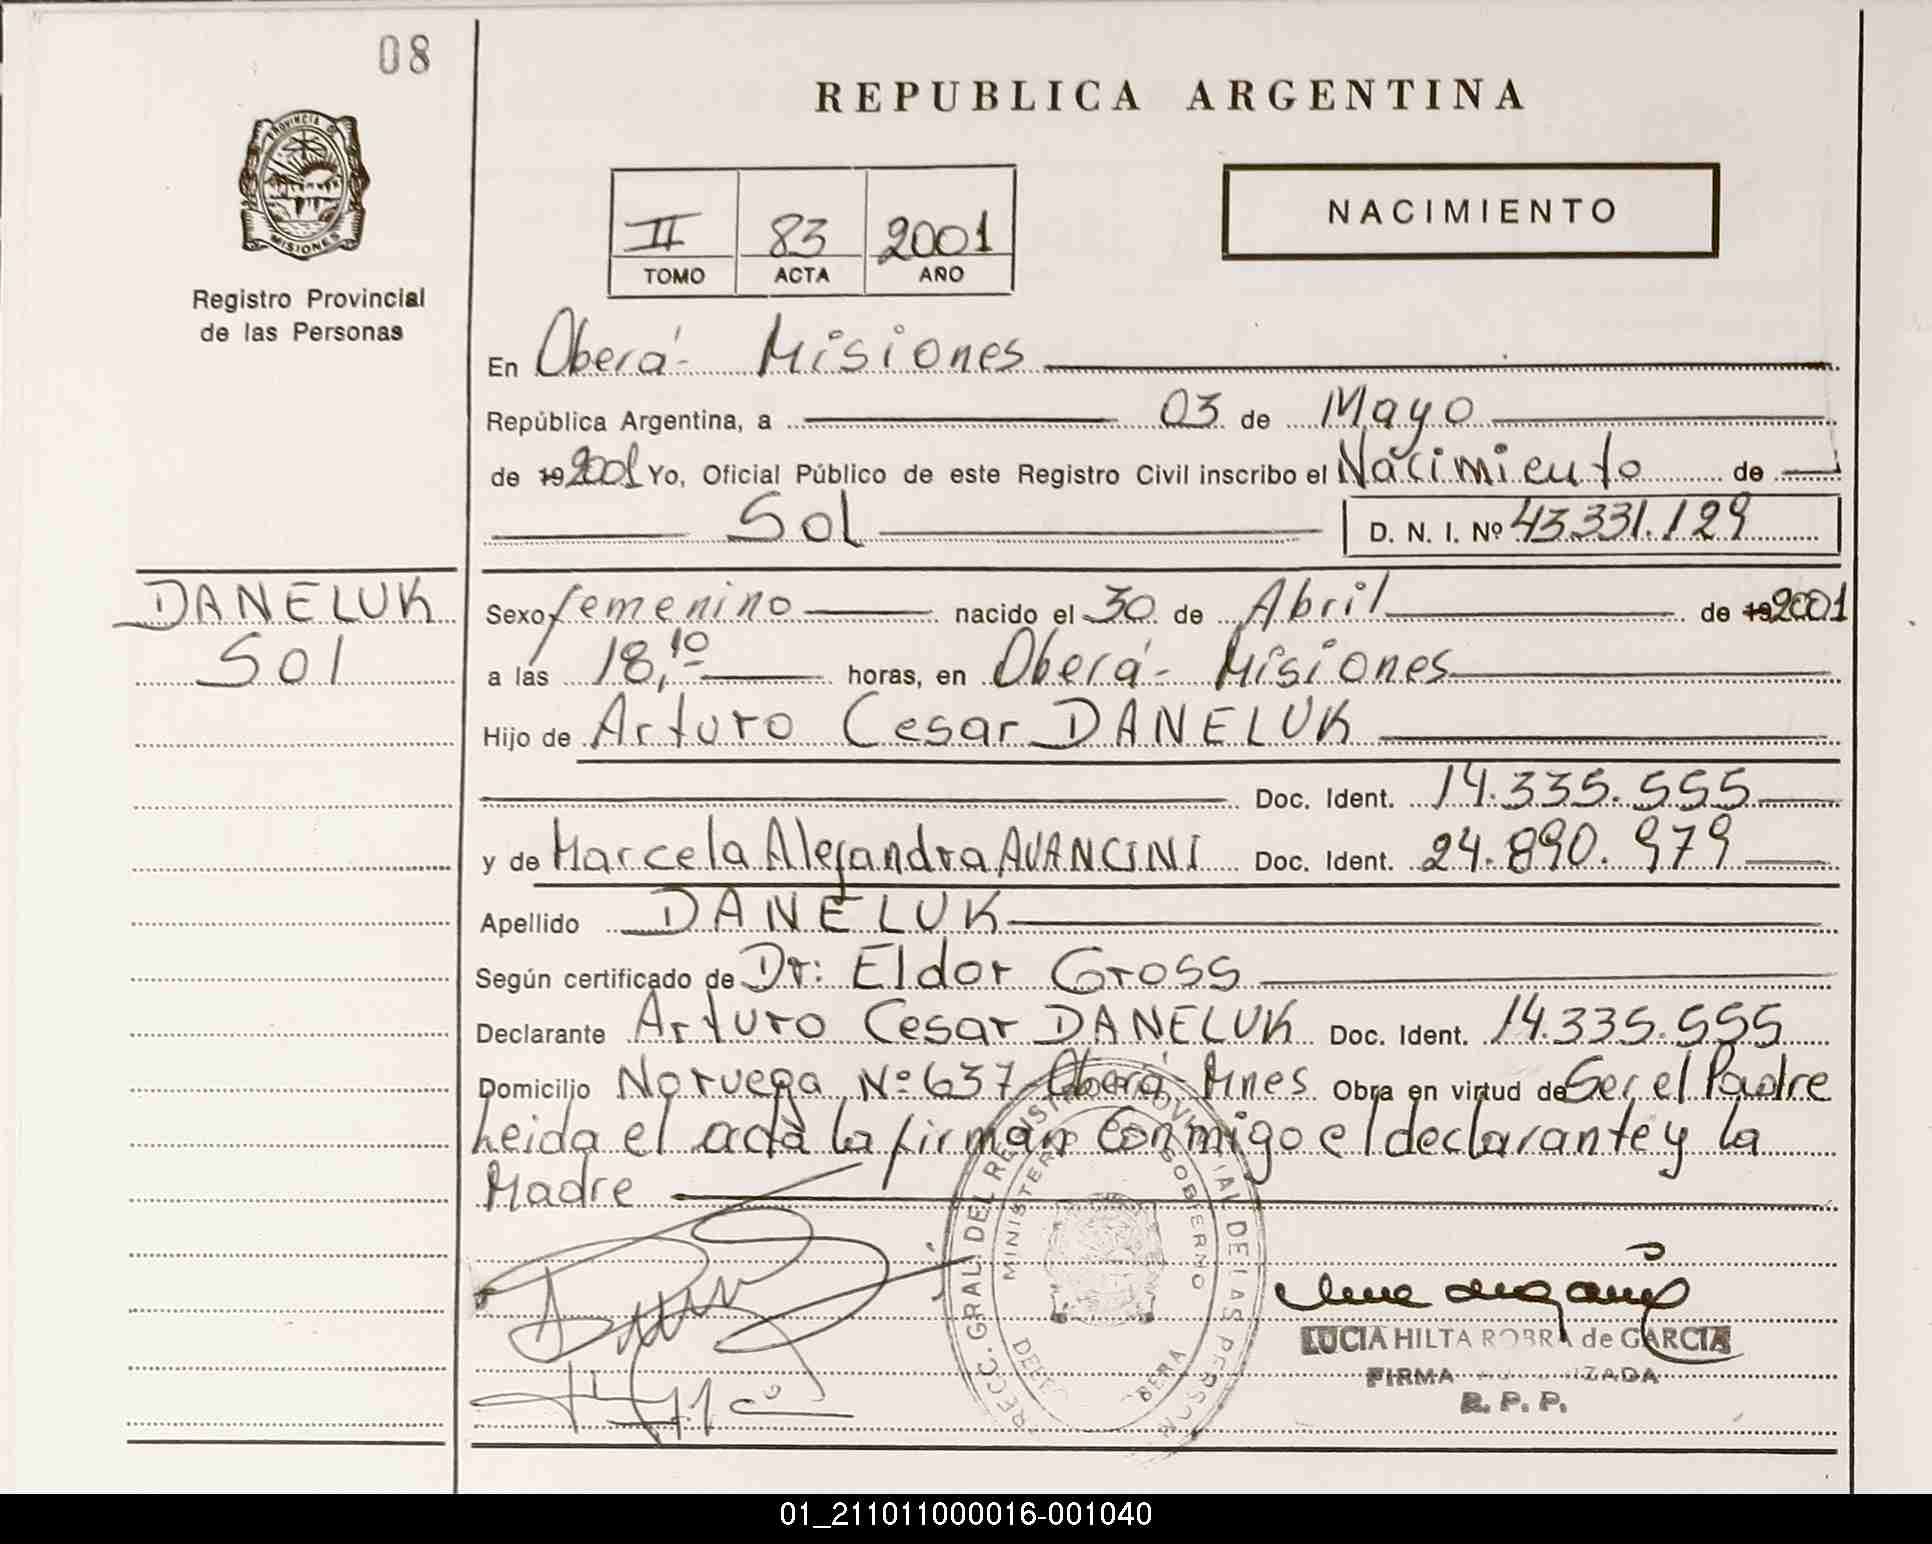 08
REPUBLICA ARGENTINA
PROVINCIA DE
MISIONES
Registro Provincial
de las Personas
II 83 2001
TOMO ACTA AÑO
NACIMIENTO
En Oberá- Misiones
República Argentina, a 03 de Mayo
de 19 2001 Yo, Oficial Público de este Registro Civil inscribo el Nacimiento de
Sol D. N. I. Nº 43.331.129
DANELUK
Sol
Sexo femenino nacido el 30 de Abril de 19 2001
a las 18,10 horas, en Oberá- Misiones
Hijo de Arturo Cesar DANELUK
Doc. Ident. 14.335.555
y de Marcela Alejandra AVANCINI Doc. Ident. 24.890.979
Apellido DANELUK
Según certificado de Dr: Eldor Gross
Declarante Arturo Cesar DANELUK Doc. Ident. 14.335.555
Domicilio Noruega Nº 637 Oberá- Mnes Obra en virtud de Ser el Padre
Leida el acta la firman conmigo el declarante y la
Madre
DEL REGISTRO PROVINCIAL DE LAS
MINISTERIO GOBIERNO
LUCIA HILTA ROBRA de GARCIA
FIRMA AUTORIZADA
R. P. P.
01_211011000016-001040